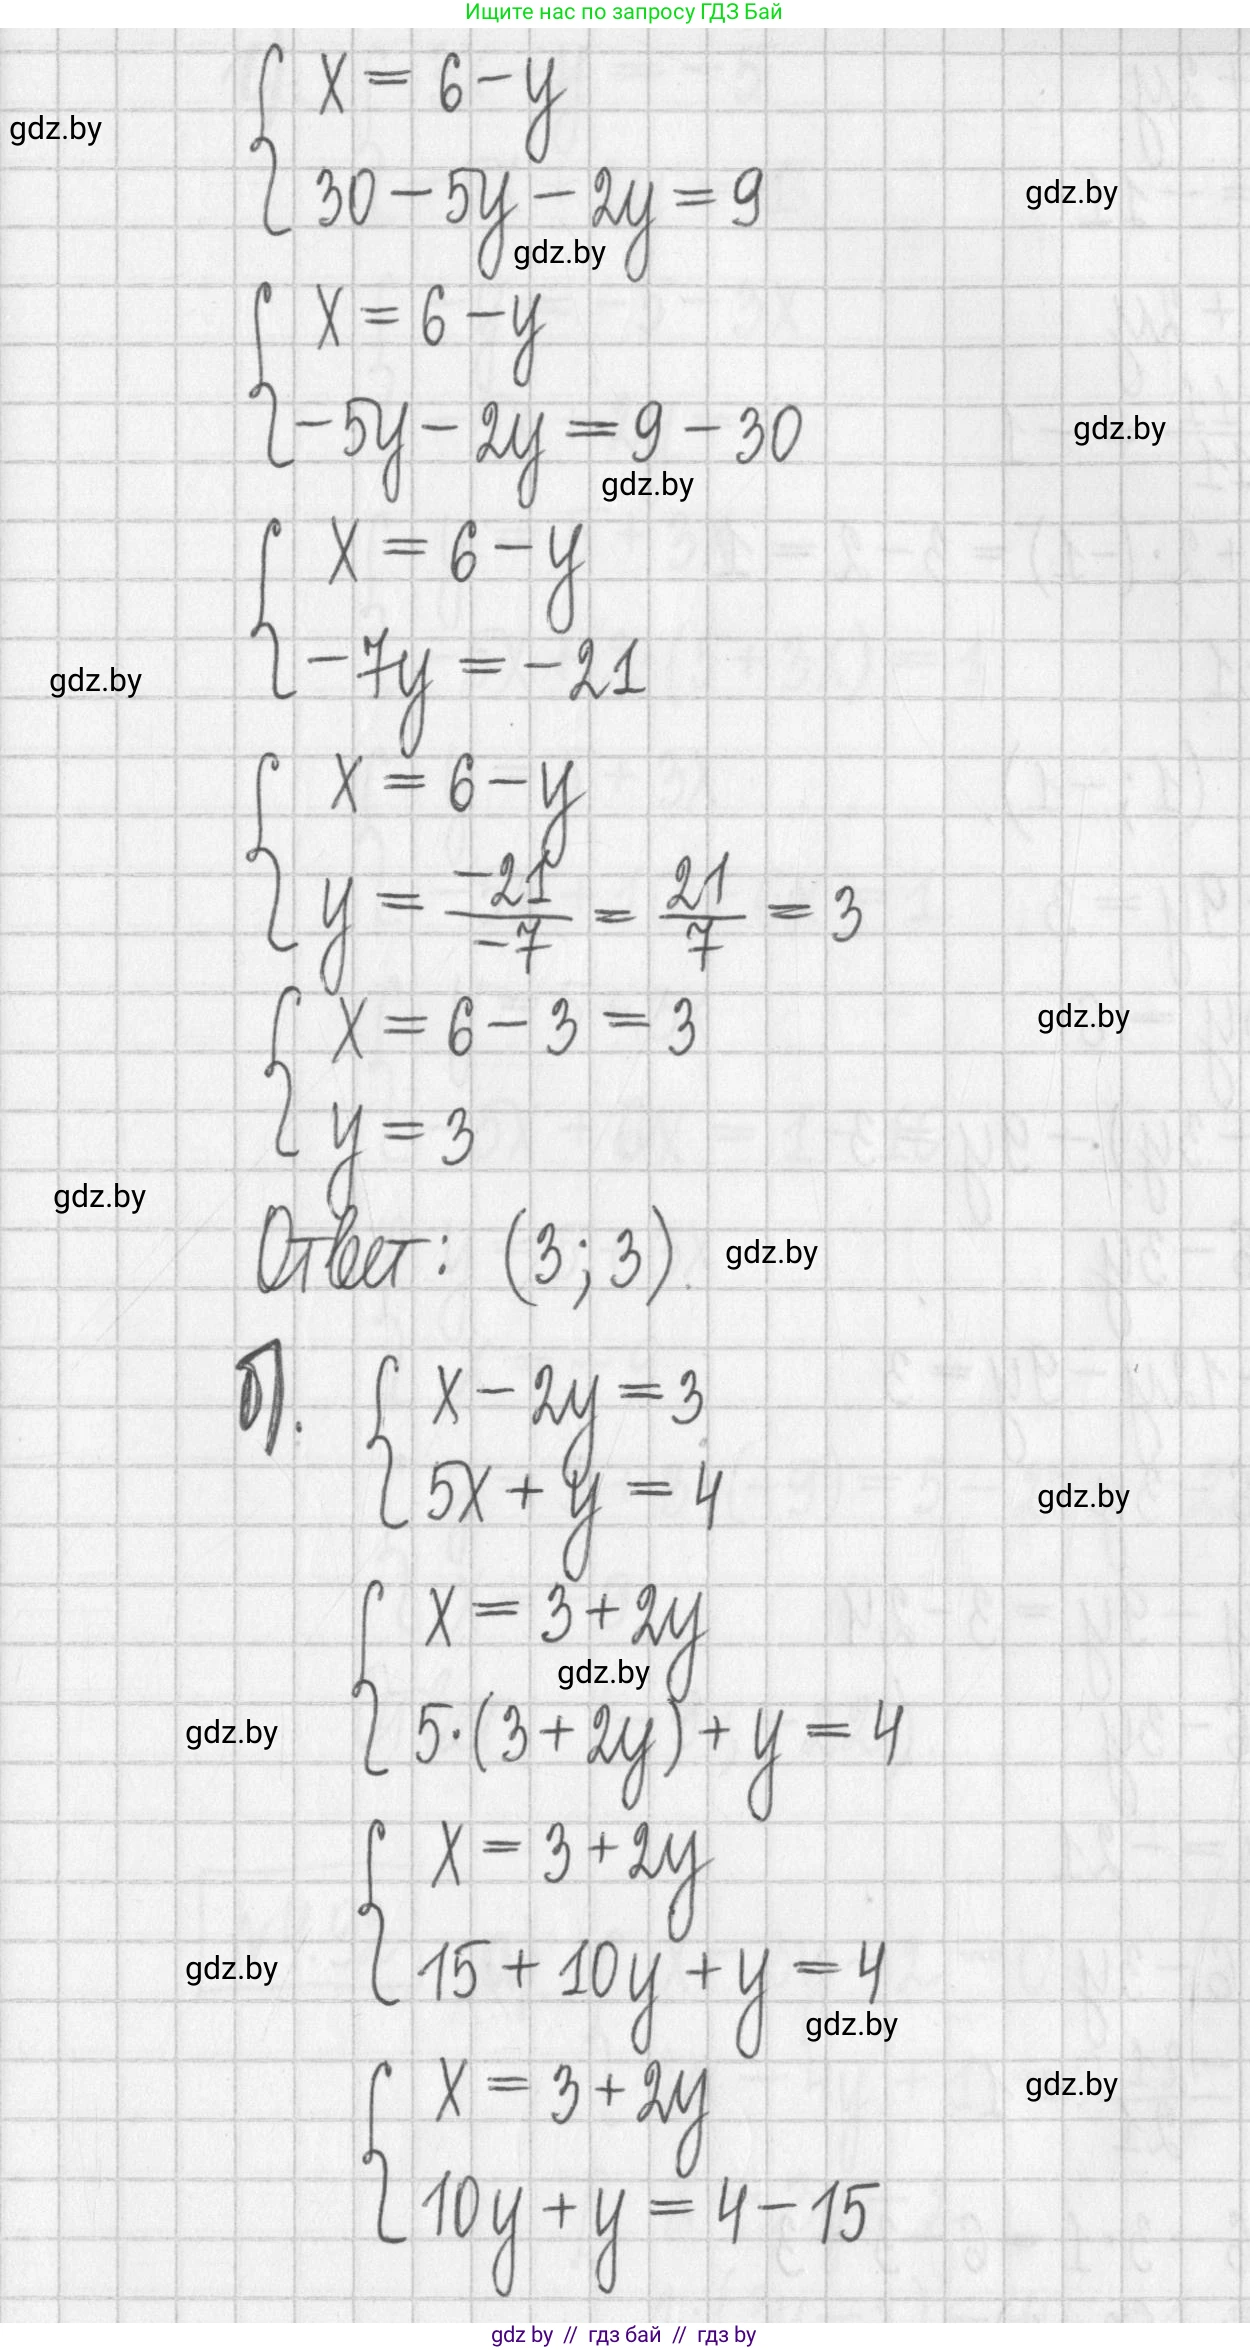 Ищите нас по запросу ГДЗ Бай
x = 6 - y
gdz.by
30 - 5y - 2y = 9
gdz.by
gdz.by
x = 6 - y
-5y - 2y = 9 - 30
gdz.by
gdz.by
x = 6 - y
-7y = -21
gdz.by
x = 6 - y
y = -21/-7 = 21/7 = 3
x = 6 - 3 = 3
gdz.by
y = 3
gdz.by
Ответ: (3; 3).
gdz.by
б). x - 2y = 3
5x + y = 4
gdz.by
x = 3 + 2y
gdz.by
5·(3 + 2y) + y = 4
gdz.by
x = 3 + 2y
15 + 10y + y = 4
gdz.by
gdz.by
x = 3 + 2y
gdz.by
10y + y = 4 - 15
gdz by // гдз бай // гдз by